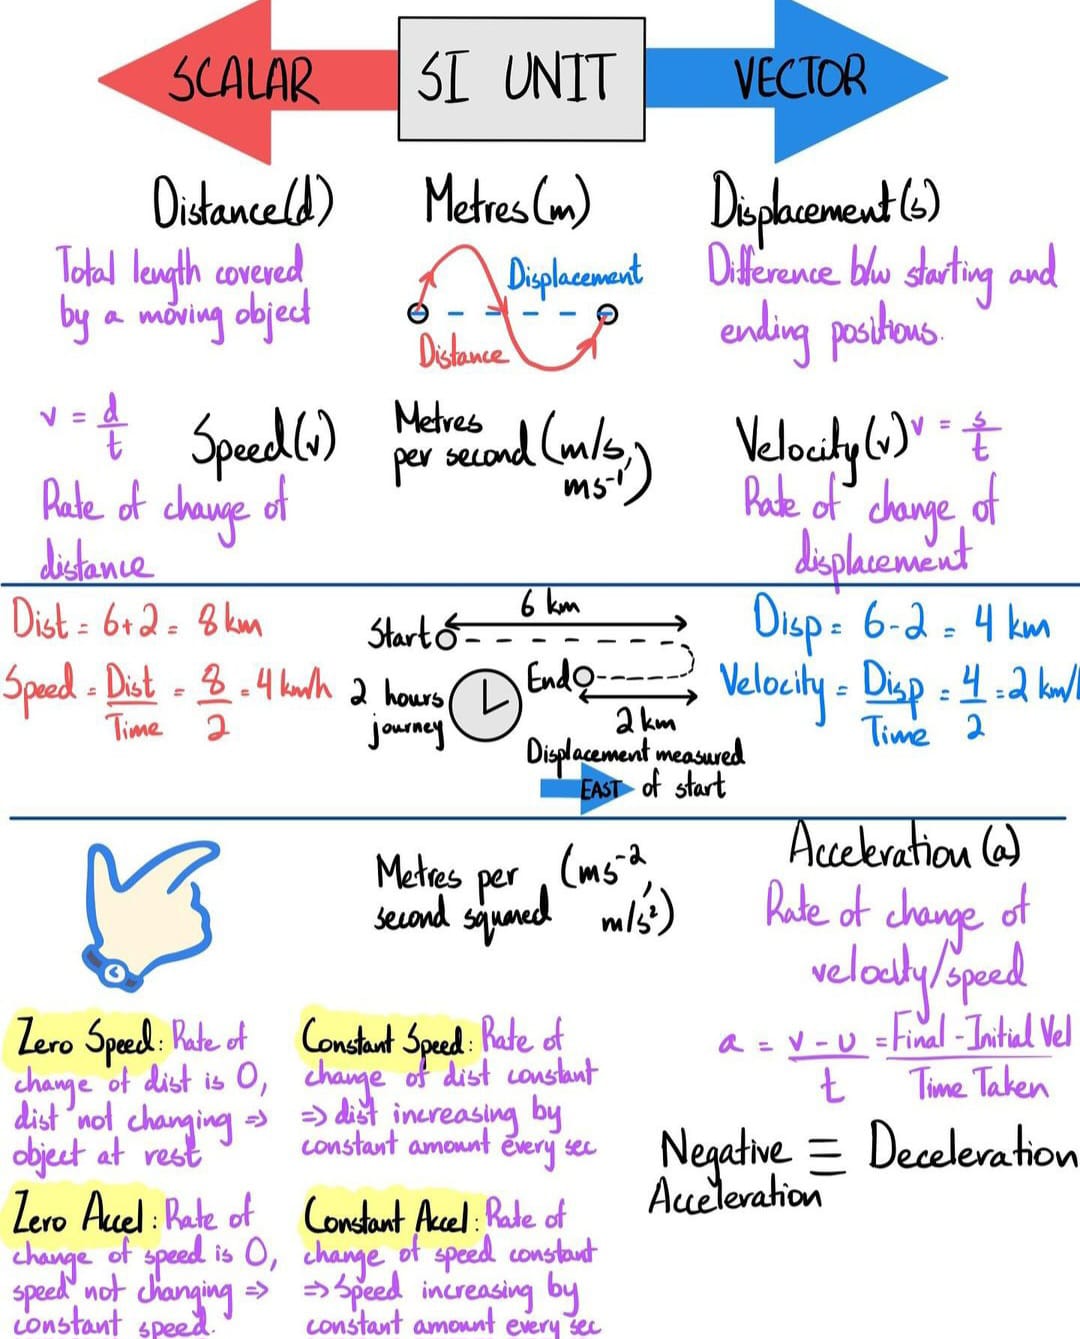 SCALAR
SI UNIT
VECTOR
Distance(d)
Metres(m)
Displacement(s)
Total length covered
by a moving object
Displacement
Distance
Difference b/w starting and
ending positions.
v = d/t
Speed(v)
Metres
per second (m/s,
ms⁻¹)
Velocity(v)
v = s/t
Rate of change of
distance
Rate of change of
displacement
Dist = 6+2 = 8 km
Speed = Dist/Time = 8/2 = 4 km/h
Start
6 km
2 hours
journey
End
2 km
Displacement measured
EAST of start
Disp = 6-2 = 4 km
Velocity = Disp/Time = 4/2 = 2 km/
Metres per
second squared (ms⁻²,
m/s²)
Acceleration (a)
Rate of change of
velocity/speed
a = v-u/t = Final-Initial Vel/Time Taken
Negative ≡ Deceleration
Acceleration
Zero Speed: Rate of
change of dist is 0,
dist not changing ⇒
object at rest
Constant Speed: Rate of
change of dist constant
⇒ dist increasing by
constant amount every sec
Zero Accel: Rate of
change of speed is 0,
speed not changing ⇒
constant speed.
Constant Accel: Rate of
change of speed constant
⇒ Speed increasing by
constant amount every sec